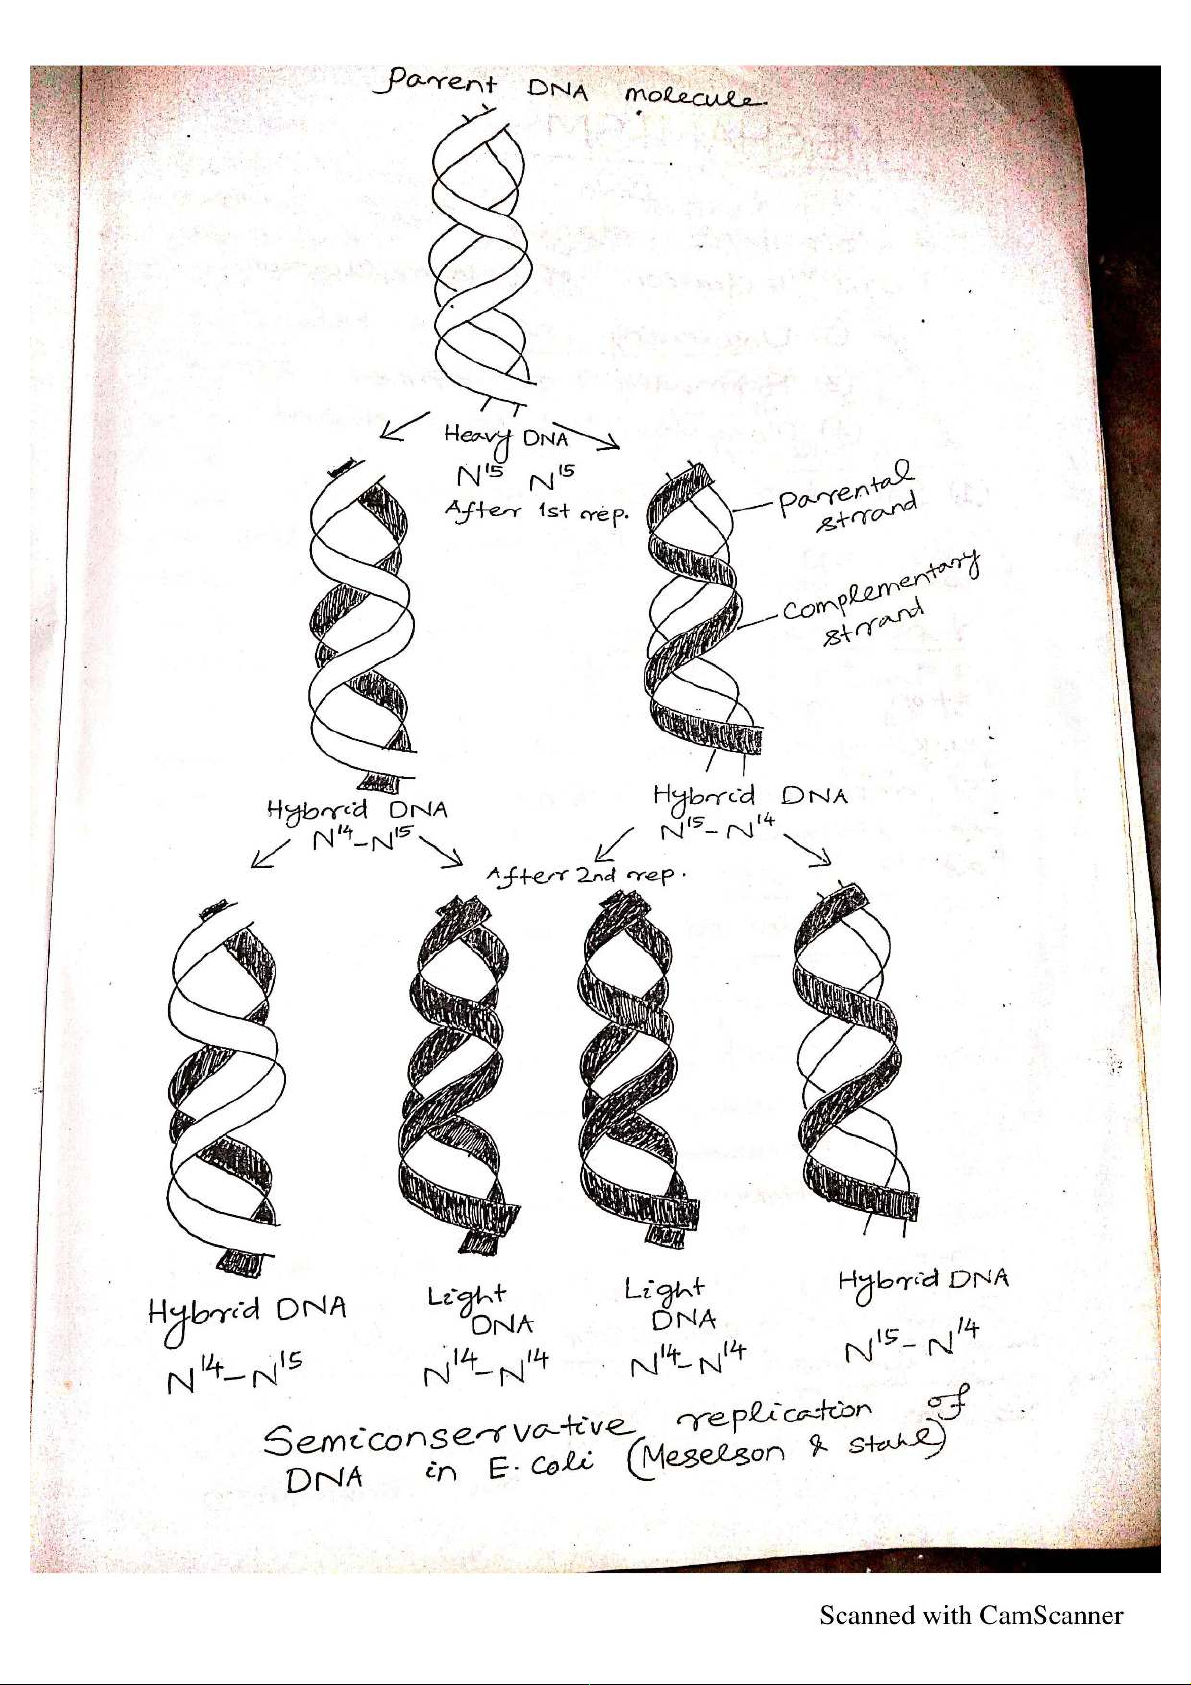 Parent DNA molecule.
Heavy DNA
N¹⁵ N¹⁵
After 1st rep.
Parental
strand
Complementary
strand
Hybrid DNA
N¹⁴-N¹⁵
Hybrid DNA
N¹⁵-N¹⁴
After 2nd rep.
Hybrid DNA
N¹⁴-N¹⁵
Light
DNA
N¹⁴-N¹⁴
Light
DNA
N¹⁴-N¹⁴
Hybrid DNA
N¹⁵-N¹⁴
Semiconservative replication of
DNA in E. Coli (Meselson & Stahl)
Scanned with CamScanner